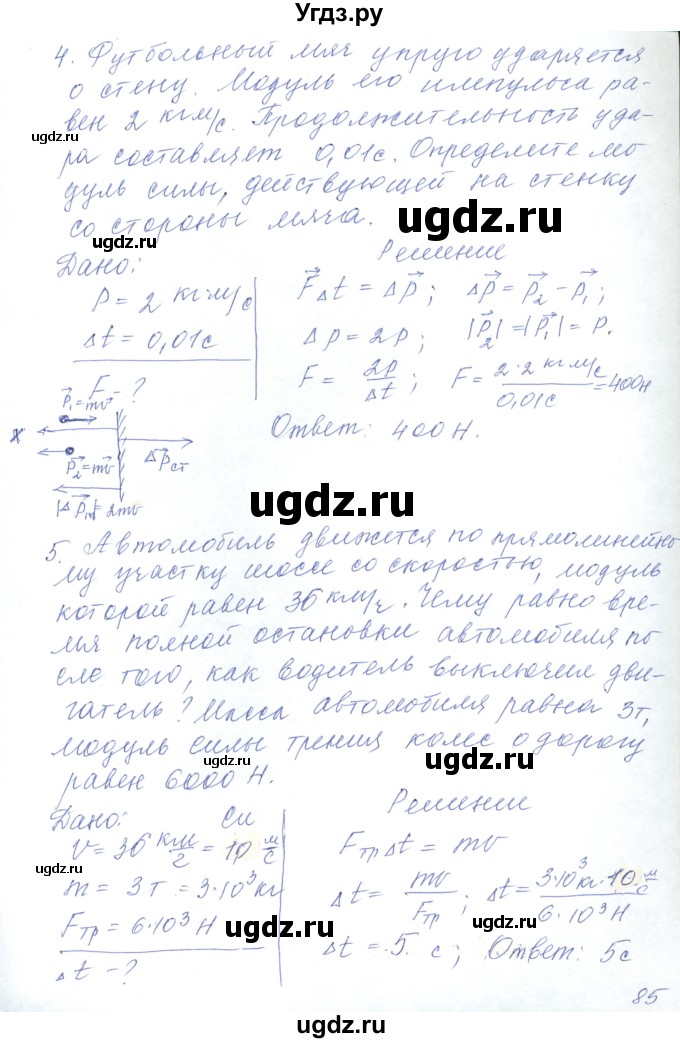 Угдз.ру
4. Футбольный мяч упруго ударяется
о стену. Модуль его импульса ра-
вен 2 кг·м/с. Продолжительность уда-
ра составляет 0,01с. Определите мо-
дуль силы, действующей на стенку
со стороны мяча.
Дано:
P = 2 кг·м/с
Δt = 0,01с
F - ?
Решение
F⃗Δt = Δp⃗; Δp⃗ = p⃗₂ - p⃗₁;
Δp = 2p; |p⃗₂| = |p⃗₁| = p.
F = 2p/Δt; F = 2·2 кг·м/с / 0,01с = 400Н
p⃗₁ = mv⃗
x
p⃗₂ = mv⃗
Δp⃗ст
Ответ: 400 Н.
5. Автомобиль движется по прямолинейно
му участку шоссе со скоростью, модуль
которой равен 36 км/ч. Чему равно вре-
мя полной остановки автомобиля по
сле того, как водитель выключил дви-
гатель? Масса автомобиля равна 3т,
модуль силы трения колес о дорогу
равен 6000 Н.
Дано: Си
v = 36 км/г = 10 м/с
m = 3т = 3·10³ кг
Fтр = 6·10³ Н
Δt - ?
Решение
FтрΔt = mv
Δt = mv/Fтр; Δt = 3·10³кг·10 м/с / 6·10³Н
Δt = 5 с; Ответ: 5с
85
ugdz.ru
ugdz.ru
ugdz.ru
ugdz.ru
ugdz.ru
ugdz.ru
ugdz.ru
ugdz.ru
ugdz.ru
ugdz.ru
ugdz.ru
ugdz.ru
ugdz.ru